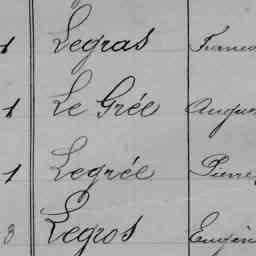 1 Legras
1 Le Grée Augus
1 Legrée Pierre
3 Legros Eugèn